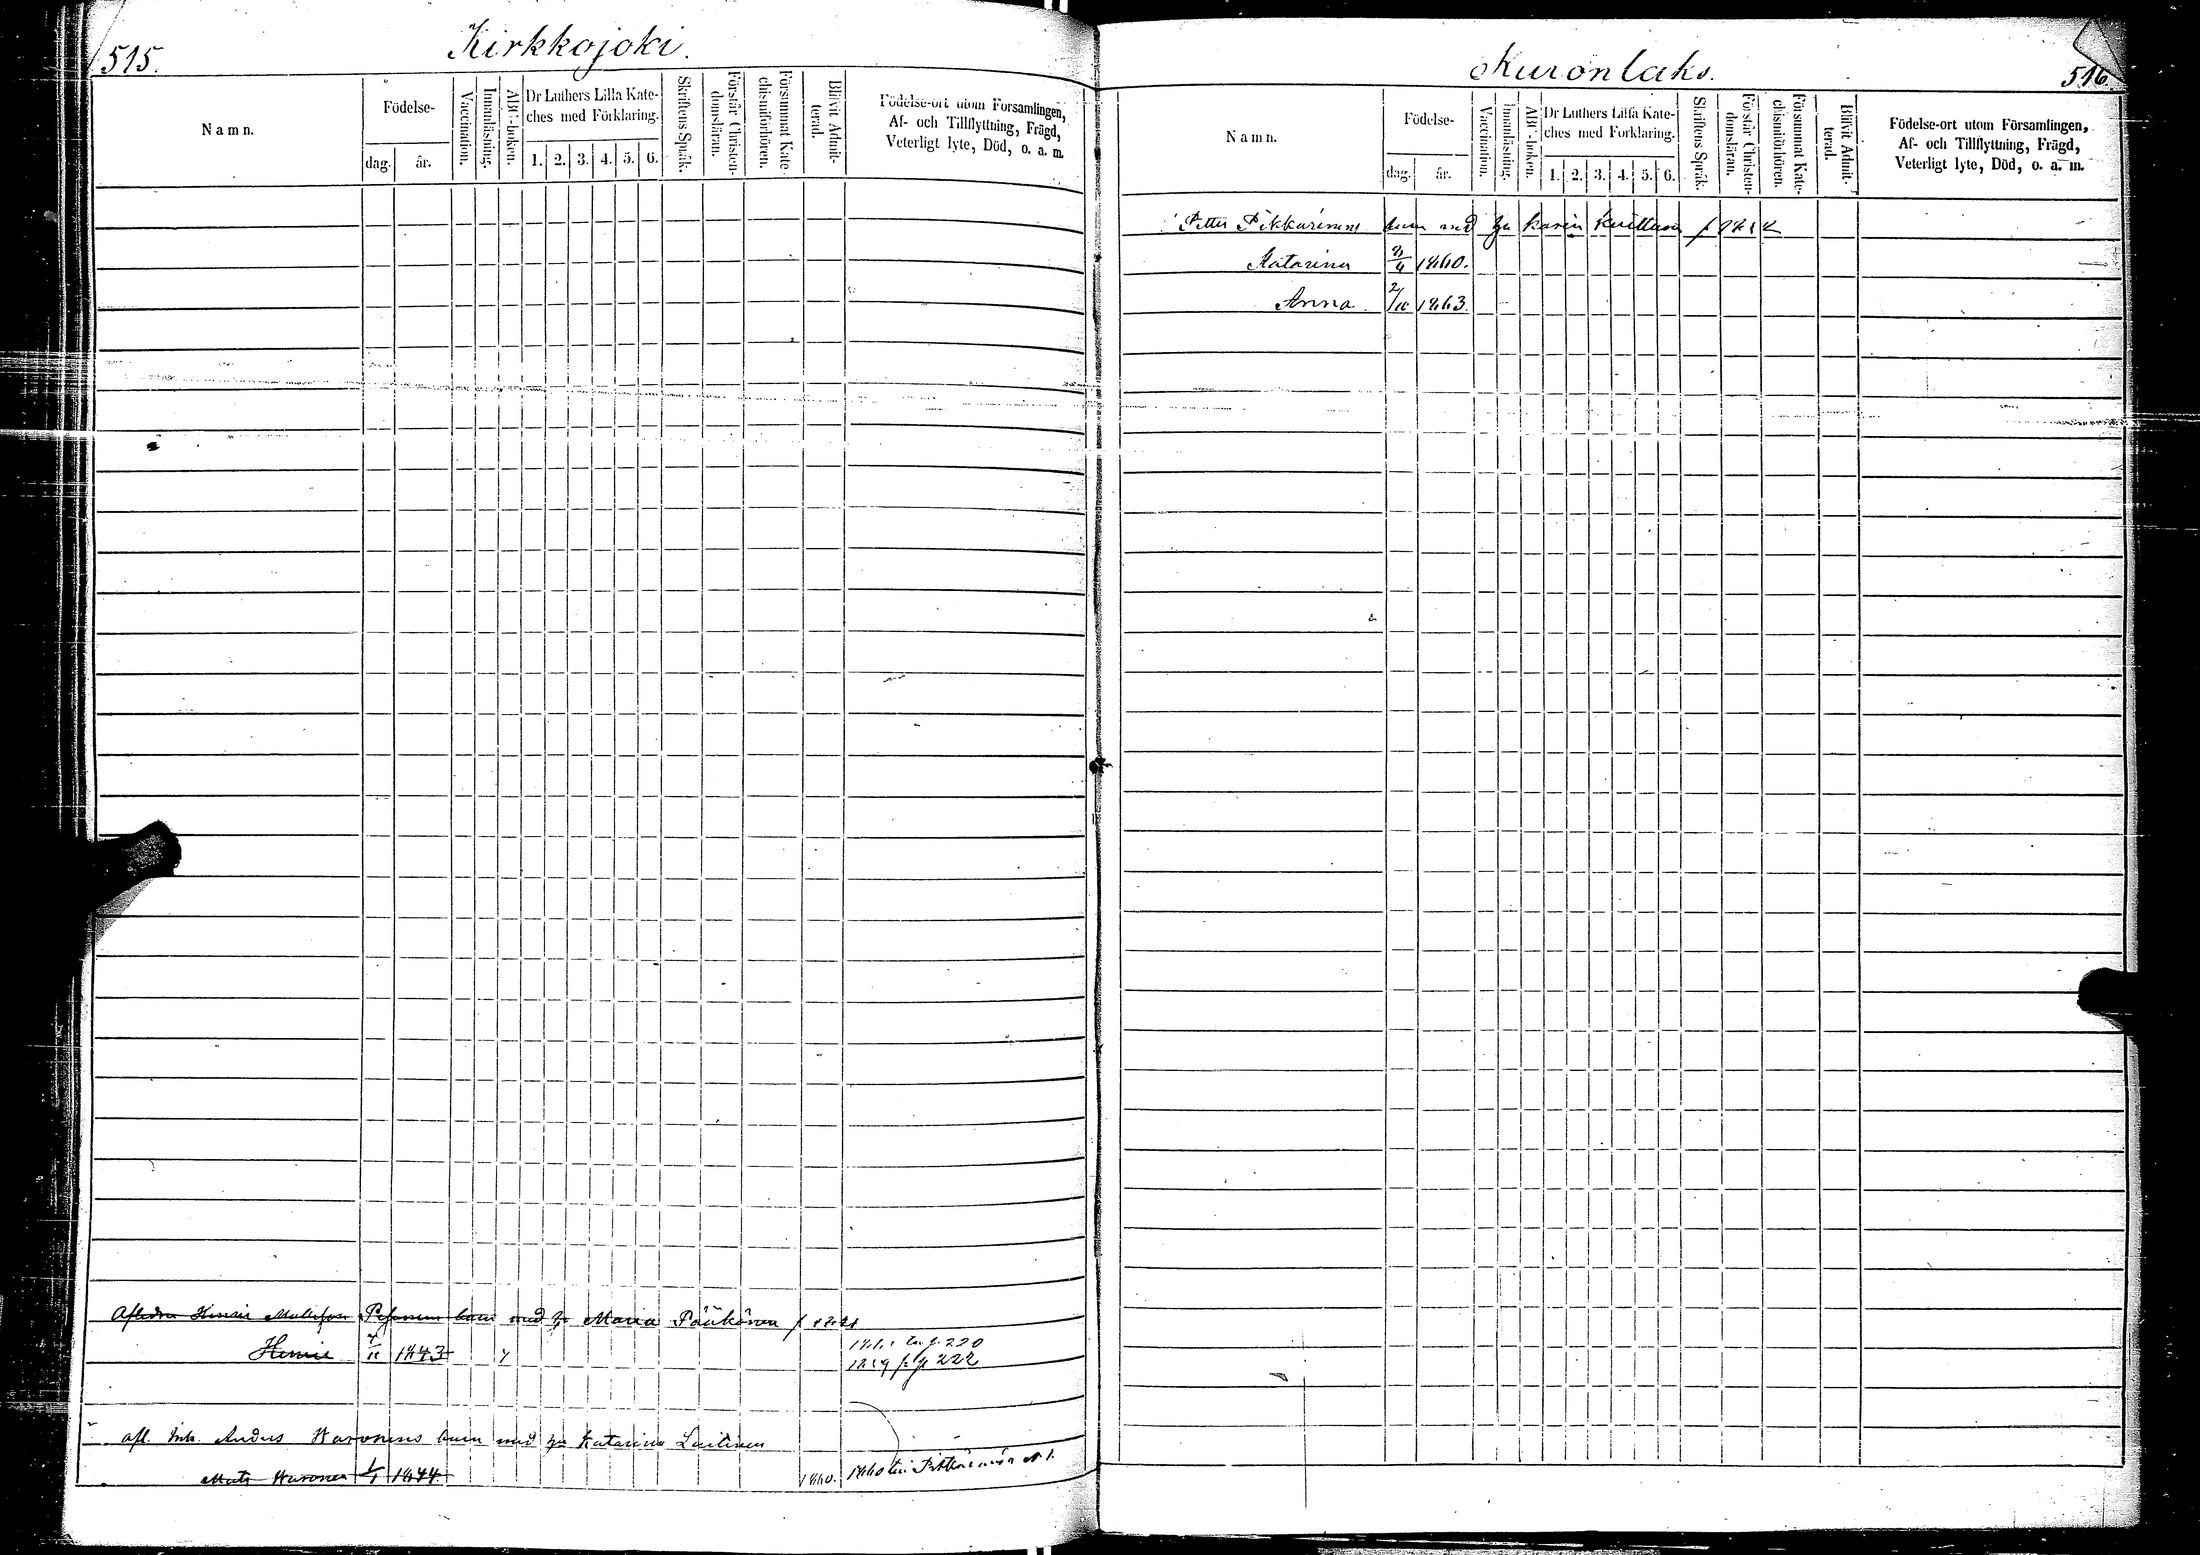 515.
Kirkkojoki.
Namn.
Födelse-
dag.
år.
Vaccination.
Innanläsning.
ABC-boken.
Dr Luthers Lilla Kate-
ches med Förklaring.
1. 2. 3. 4. 5. 6.
Skriftens Språk.
Förstår Christen-
domsläran.
Försummat Kate-
chismiförhören.
Blifvit Admit-
terad.
Födelse-ort utom Församlingen,
Af- och Tillflyttning, Frägd,
Veterligt lyte, Död, o. a. m.
Henric Pesonens barn med hu Maria Pääkönen f
Henric 11 1843
220
222
afl. Inh. Anders Haronens barn med hu Katarina Laitinen
Mats Haronen 1/1 1844. 1860. 1860
Kuronlaks.
516.
Namn.
Födelse-
dag.
år.
Vaccination.
Innanläsning.
ABC-boken.
Dr Luthers Lilla Kate-
ches med Förklaring.
1. 2. 3. 4. 5. 6.
Skriftens Språk.
Förstår Christen-
domsläran.
Försummat Kate-
chismiörhören.
Blifvit Admit-
terad.
Födelse-ort utom Församlingen,
Af- och Tillflyttning, Frägd,
Veterligt lyte, Död, o. a. m.
Petter Pikkarinens barn med hu Karin f
Katarina 1860.
Anna 2/10 1863.